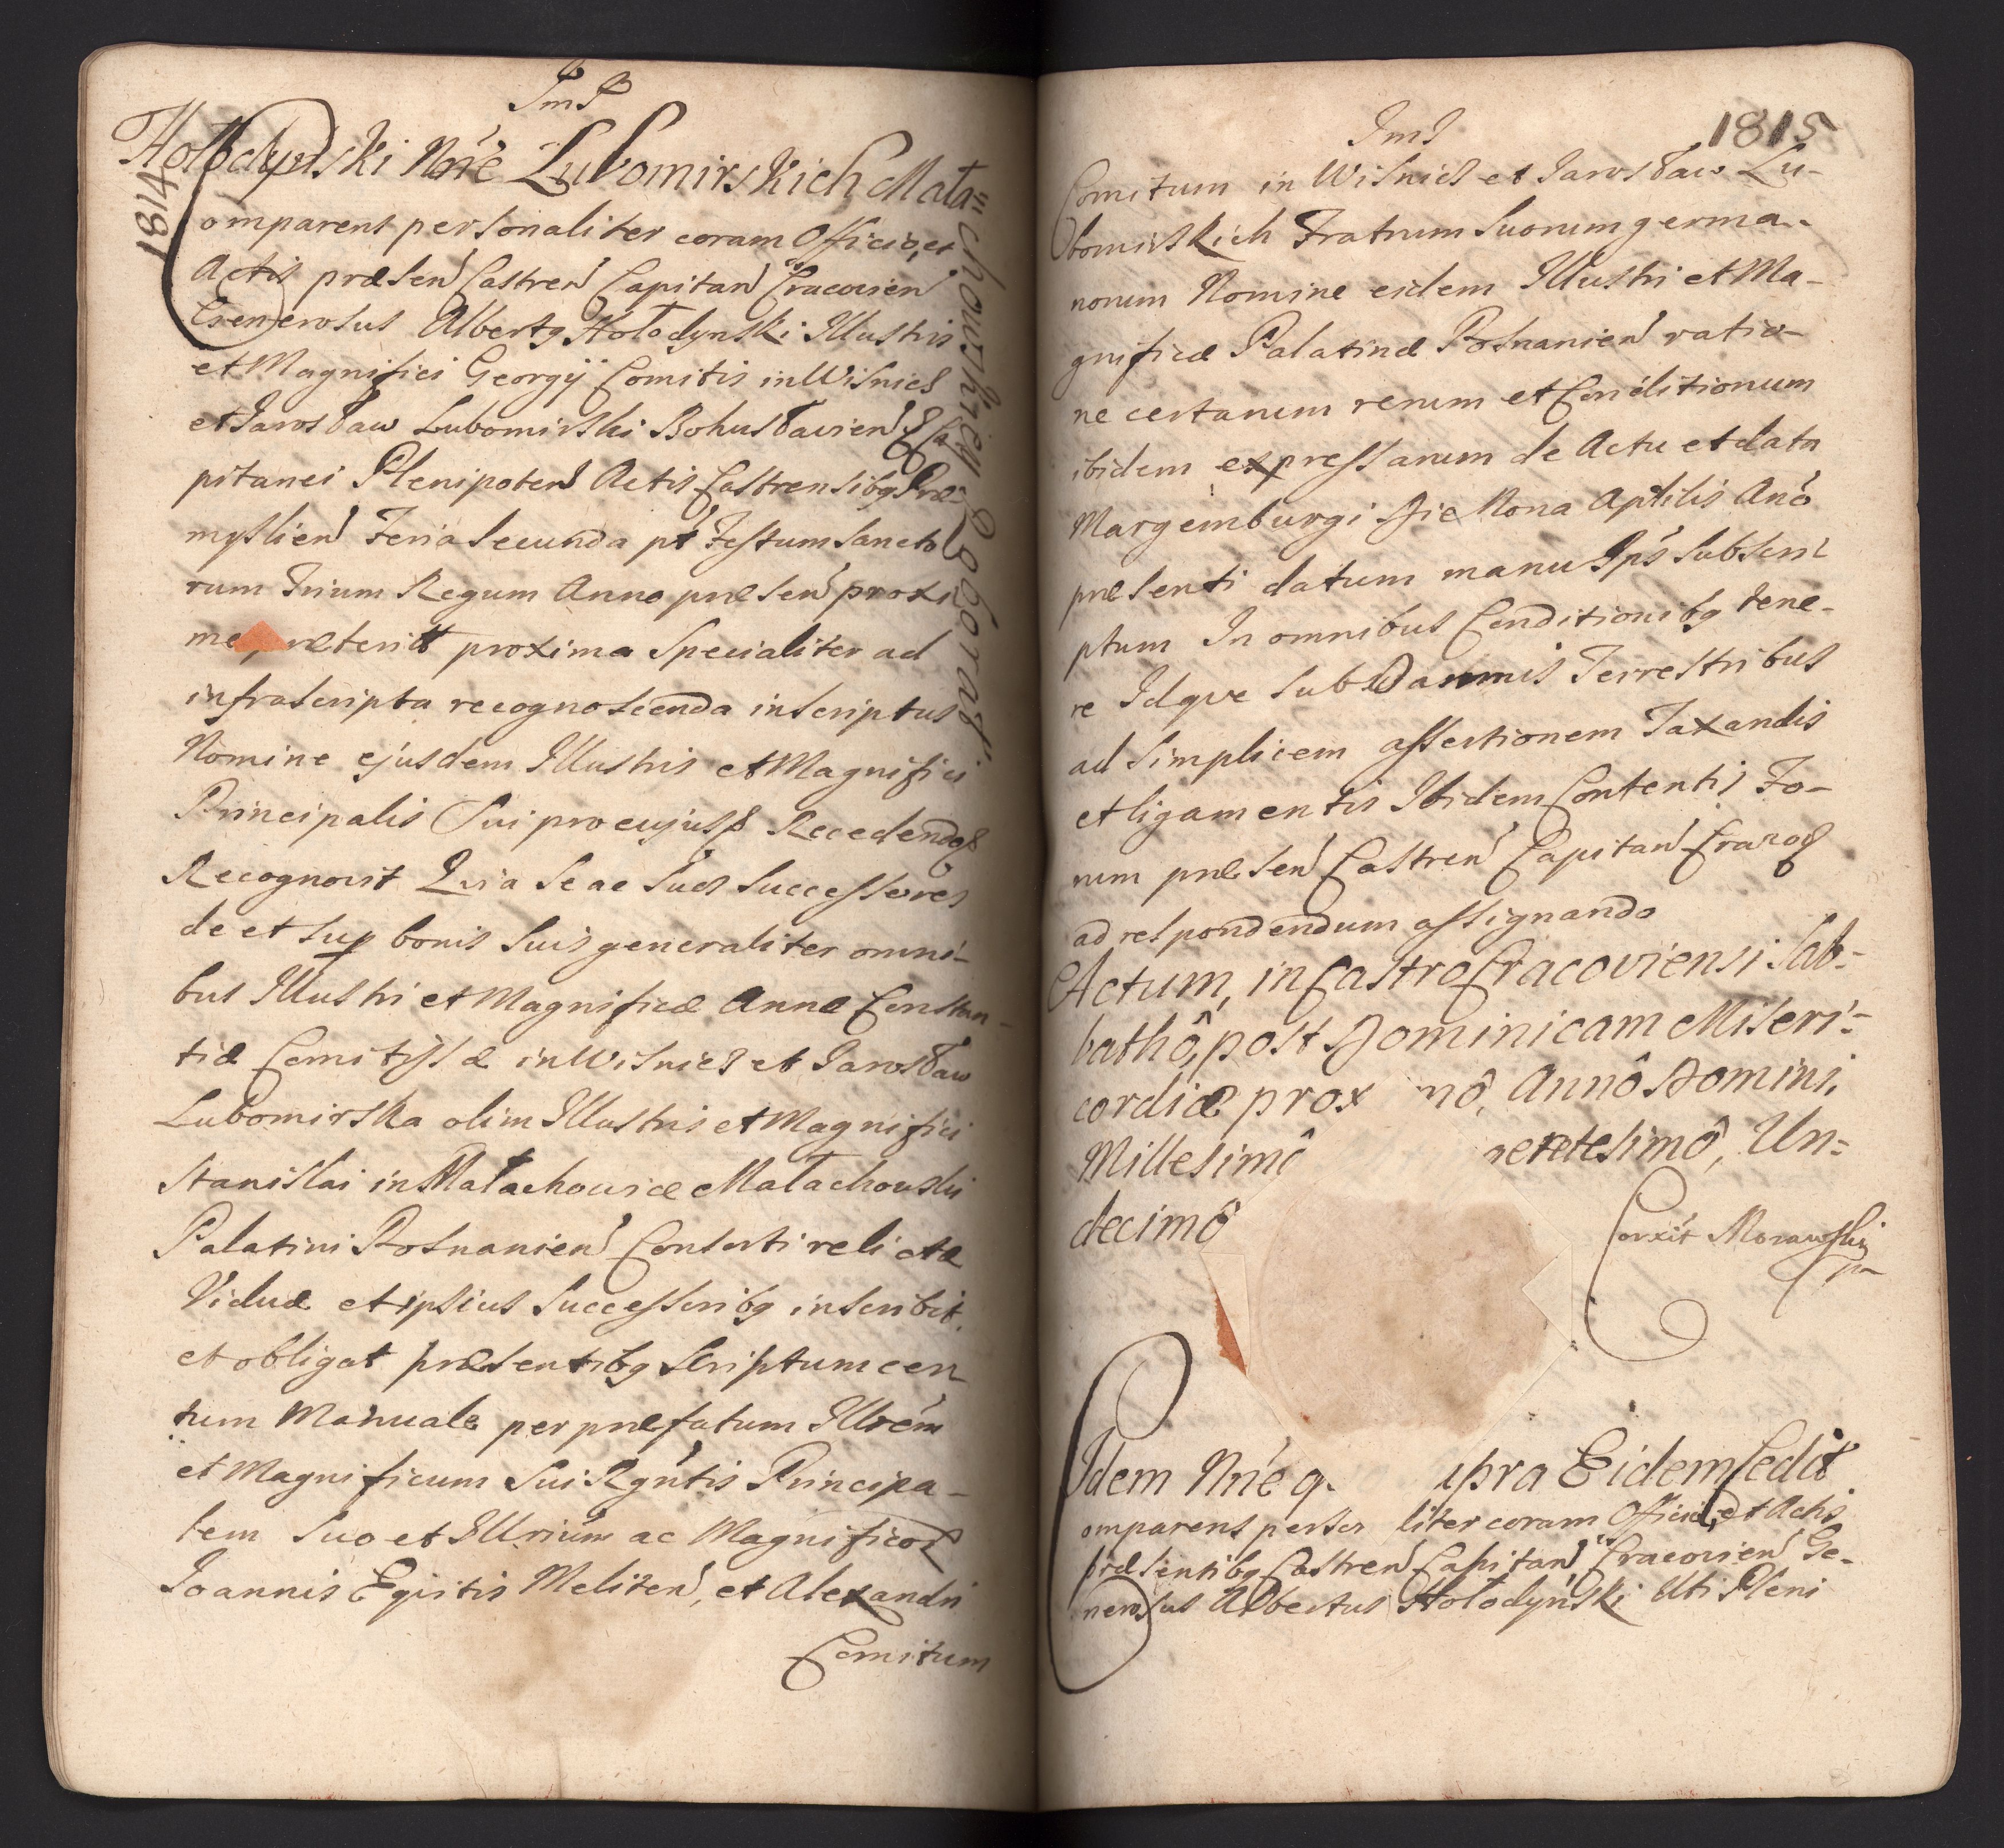 JmJ
1814
Hołodyński Nõie Lubomirskich Mała=
chowskiey Roborat
Comparens personaliter coram Officio, et
Actis præsen Castren Capitan Cracovien
Generosus Albertq Hołodynski Illustris
et Magnifici Georgij Comitis in Wisnicz
et Jarosław Lubomirski Bohusławien Ca
pitanei Plenipoten Actis Castrensibq Præ
myslien Feria Secunda pt Festum Sancto
rum Trium Regum Anno præsen proxi
me præterit proxima Specialiter ad
infrascripta recognoscenda inscriptus
Nomine ejusdem Illustris et Magnifici
Principalis Sui pro cujus Recedendo
Recognovit Quia Se ac Suos Successores
de et sup bonis Suis generaliter omni-
bus Illustri et Magnificæ Annæ Constan-
tiæ Comitissæ in Wisnicz et Jarosław
Lubomirska olim Illustris et Magnifici
Stanislai in Małachowice Małachowski
Palatini Posnanien Consorti relictæ
Viduæ et ipsius Successoribq inscribit
et obligat præsentibq Scriptum cer
tum Manuale per præfatum Illrem
et Magnificum Sui Rgntis Principa-
lem Suo et Illrium ac Magnificor
Joannis Eqvitis Meliten, et Alexandri
Comitum
JmJ
1815
Comitum in Wisnicz et Jarosław Lu-
bomirskich Fratrum Suorum germa-
norum Nomine eidem Illustri et Ma-
gnificæ Palatinæ Posnanien ratio-
ne certarum rerum et Conditionum
ibidem expressarum de Actu et data
Margemburgi Die Nona Aprilis Ano
præsenti datum manu Ips Subscri
ptum In omnibus Conditionibq tene-
re Idqve sub Damnis Terrestribus
ad Simplicem assertionem Taxandis
et ligamentis Ibidem Contentis Fo-
rum præsen Castren Capitan Cracov
ad respondendum assignando
Actum, in Castro Cracoviensi Sab=
bathô, post Dominicam Miseri=
cordiæ prox mô, Annô Domini,
Millesimô etetesimô, Un=
decimô
Corxit Morawski
mp
Idem Nõie q. upra Eidem Cedit
Comparens perso liter coram Officio, et Actis
præsentibq Castren Capitan Cracovien Ge-
nerosus Albertus Hołodyński Uti Pleni